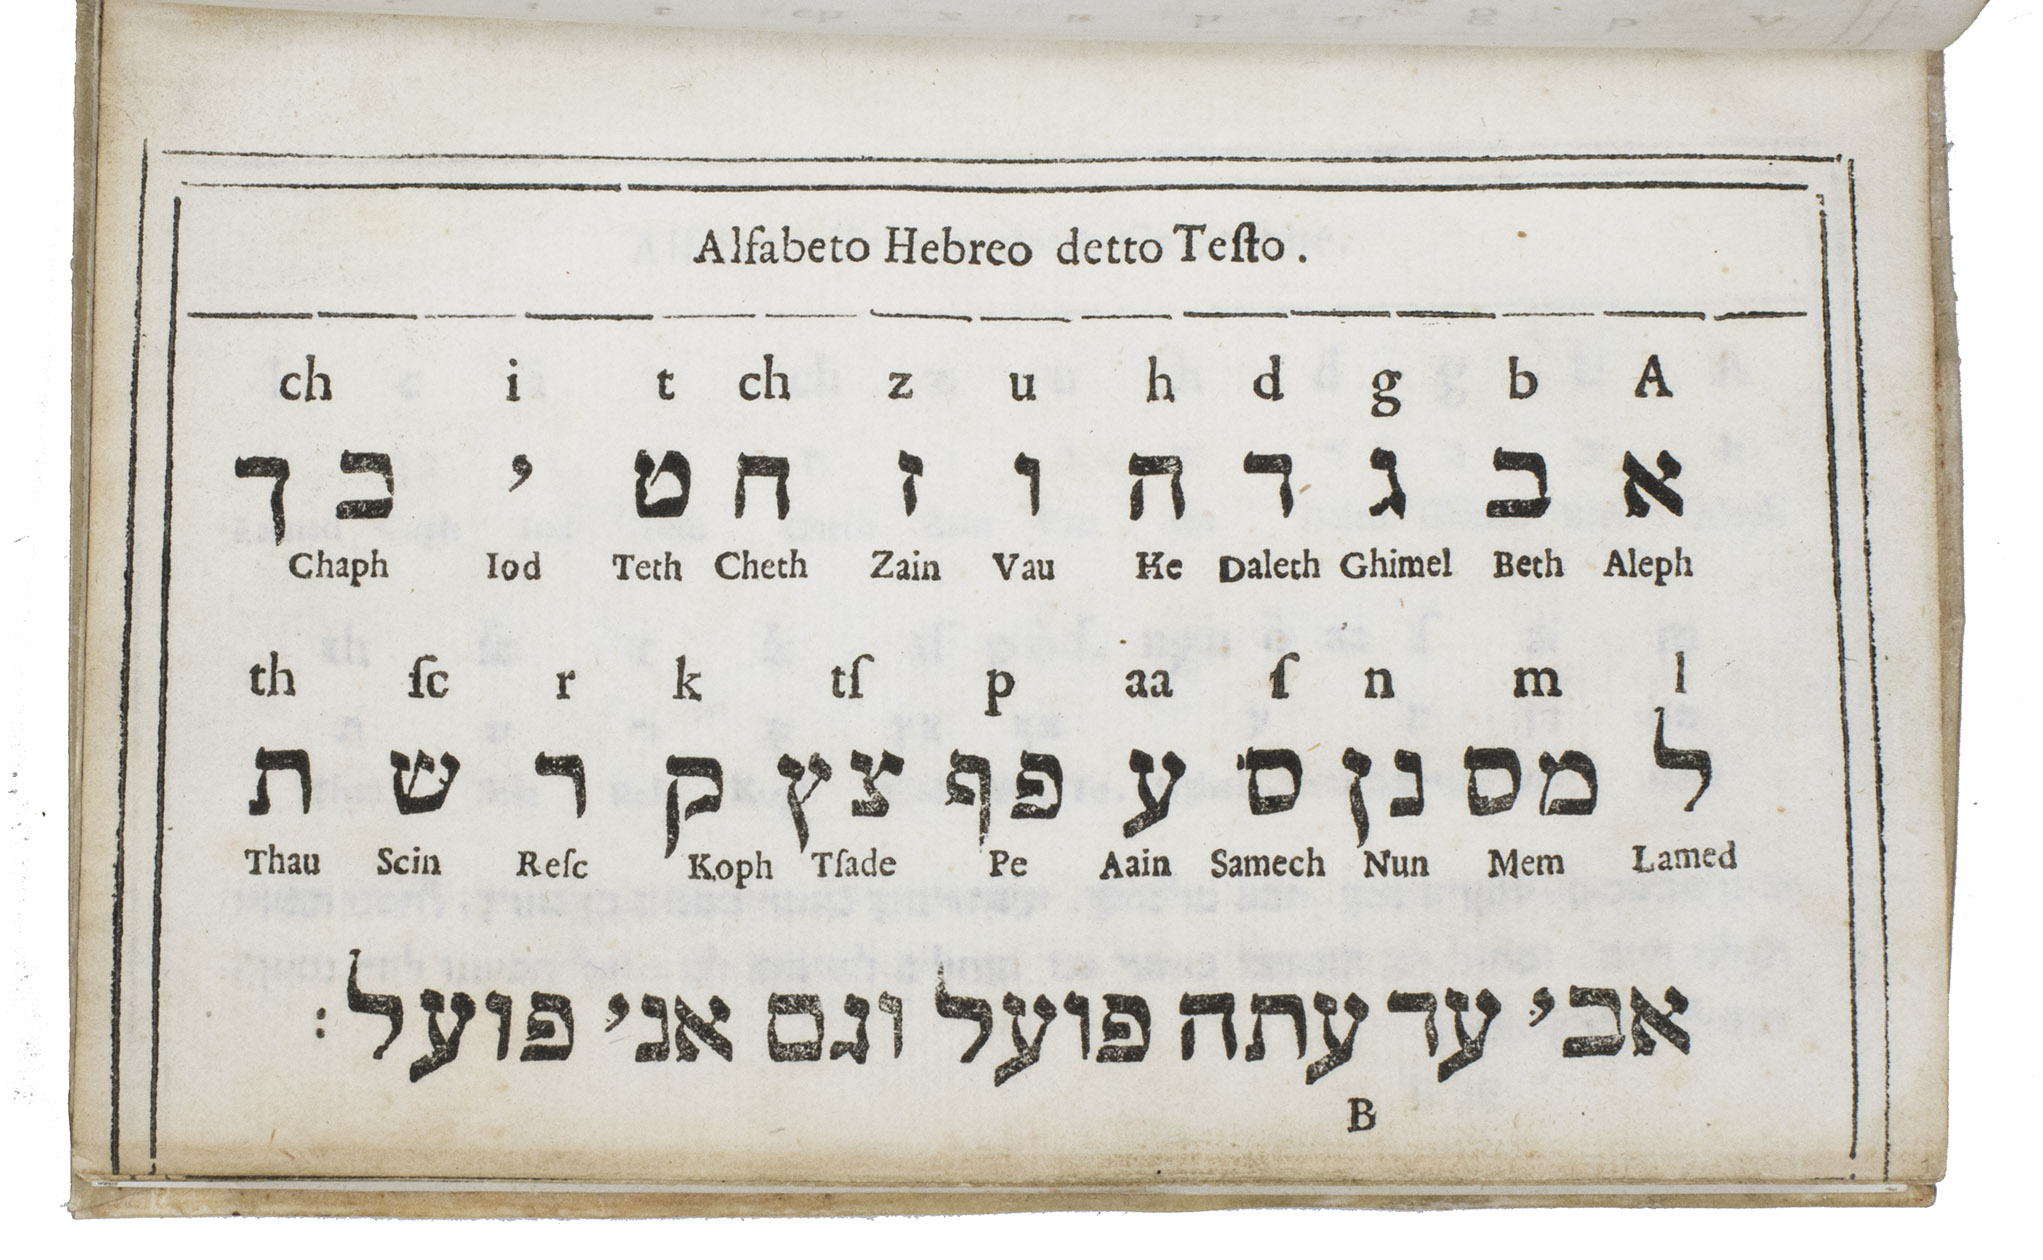 Alfabeto Hebreo detto Teſto.
ch i t ch z u h d g b A
א ב ג ד ה ו ז ח ט י כ ך
Chaph Iod Teth Cheth Zain Vau He Daleth Ghimel Beth Aleph
th ſc r k tſ p aa ſ n m l
ל מ ם נ ן ס ע פ ף צ ץ ק ר ש ת
Thau Scin Reſc Koph Tſade Pe Aain Samech Nun Mem Lamed
אבי עד עתה פועל וגם אני פועל:
B